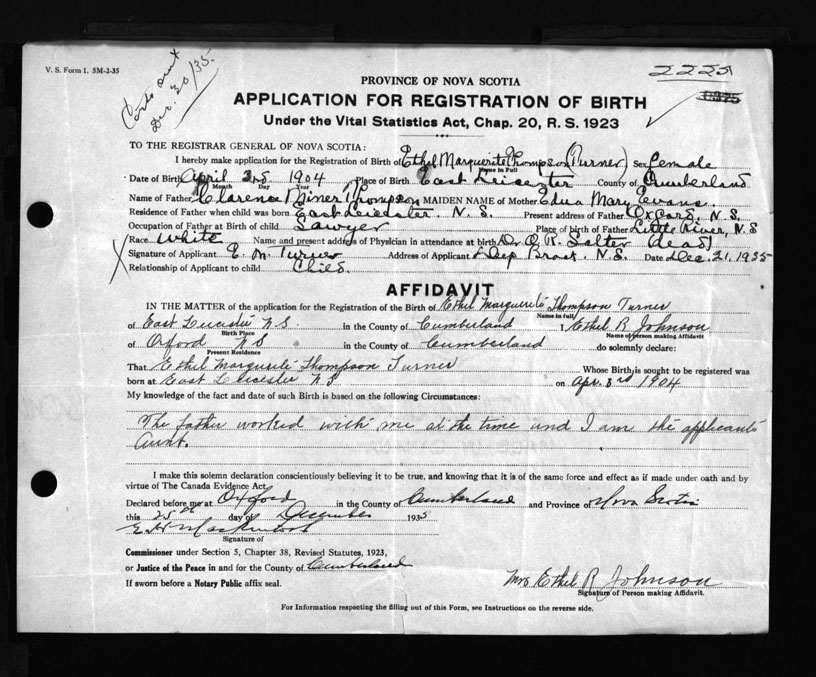 V. S. Form 1. 5M-2-35
Dec. 30/35.
2225
PROVINCE OF NOVA SCOTIA
APPLICATION FOR REGISTRATION OF BIRTH
Under the Vital Statistics Act, Chap. 20, R. S. 1923
TO THE REGISTRAR GENERAL OF NOVA SCOTIA:
I hereby make application for the Registration of Birth of Ethel Marguerite Thompson (Turner) Sex female
Name in Full
Date of Birth April 3rd 1904 Place of Birth East Leicester County of Cumberland
Month Day Year
Name of Father Clarence Miner Thompson MAIDEN NAME of Mother Edna Mary Evans.
Residence of Father when child was born East Leicester, N. S. Present address of Father Oxford, N. S.
Occupation of Father at Birth of child Sawyer Place of birth of Father Little River, N. S
Race White Name and present address of Physician in attendance at birth Dr. O. R. Salter (dead)
Signature of Applicant E. M. Turner Address of Applicant Deep Brook, N. S. Date Dec. 21, 1935
Relationship of Applicant to child Child.
AFFIDAVIT
IN THE MATTER of the application for the Registration of the Birth of Ethel Marguerite Thompson Turner
Name in full
of East Leicester N.S. in the County of Cumberland I Ethel R Johnson
Birth Place Name of person making Affidavit
of Oxford N S in the County of Cumberland do solemnly declare:
Present Residence
That Ethel Marguerite Thompson Turner Whose Birth is sought to be registered was
born at East Leicester N S on Apr. 3rd 1904
My knowledge of the fact and date of such Birth is based on the following Circumstances:
The father worked with me at the time and I am the applicants
Aunt.
I make this solemn declaration conscientiously believing it to be true, and knowing that it is of the same force and effect as if made under oath and by
virtue of The Canada Evidence Act.
Declared before me at Oxford in the County of Cumberland and Province of Nova Scotia
this day of December 1935
Signature of
Commissioner under Section 5, Chapter 38, Revised Statutes, 1923,
or Justice of the Peace in and for the County of Cumberland
If sworn before a Notary Public affix seal.
Mrs Ethel R Johnson
Signature of Person making Affidavit.
For Information respecting the filling out of this Form, see Instructions on the reverse side.